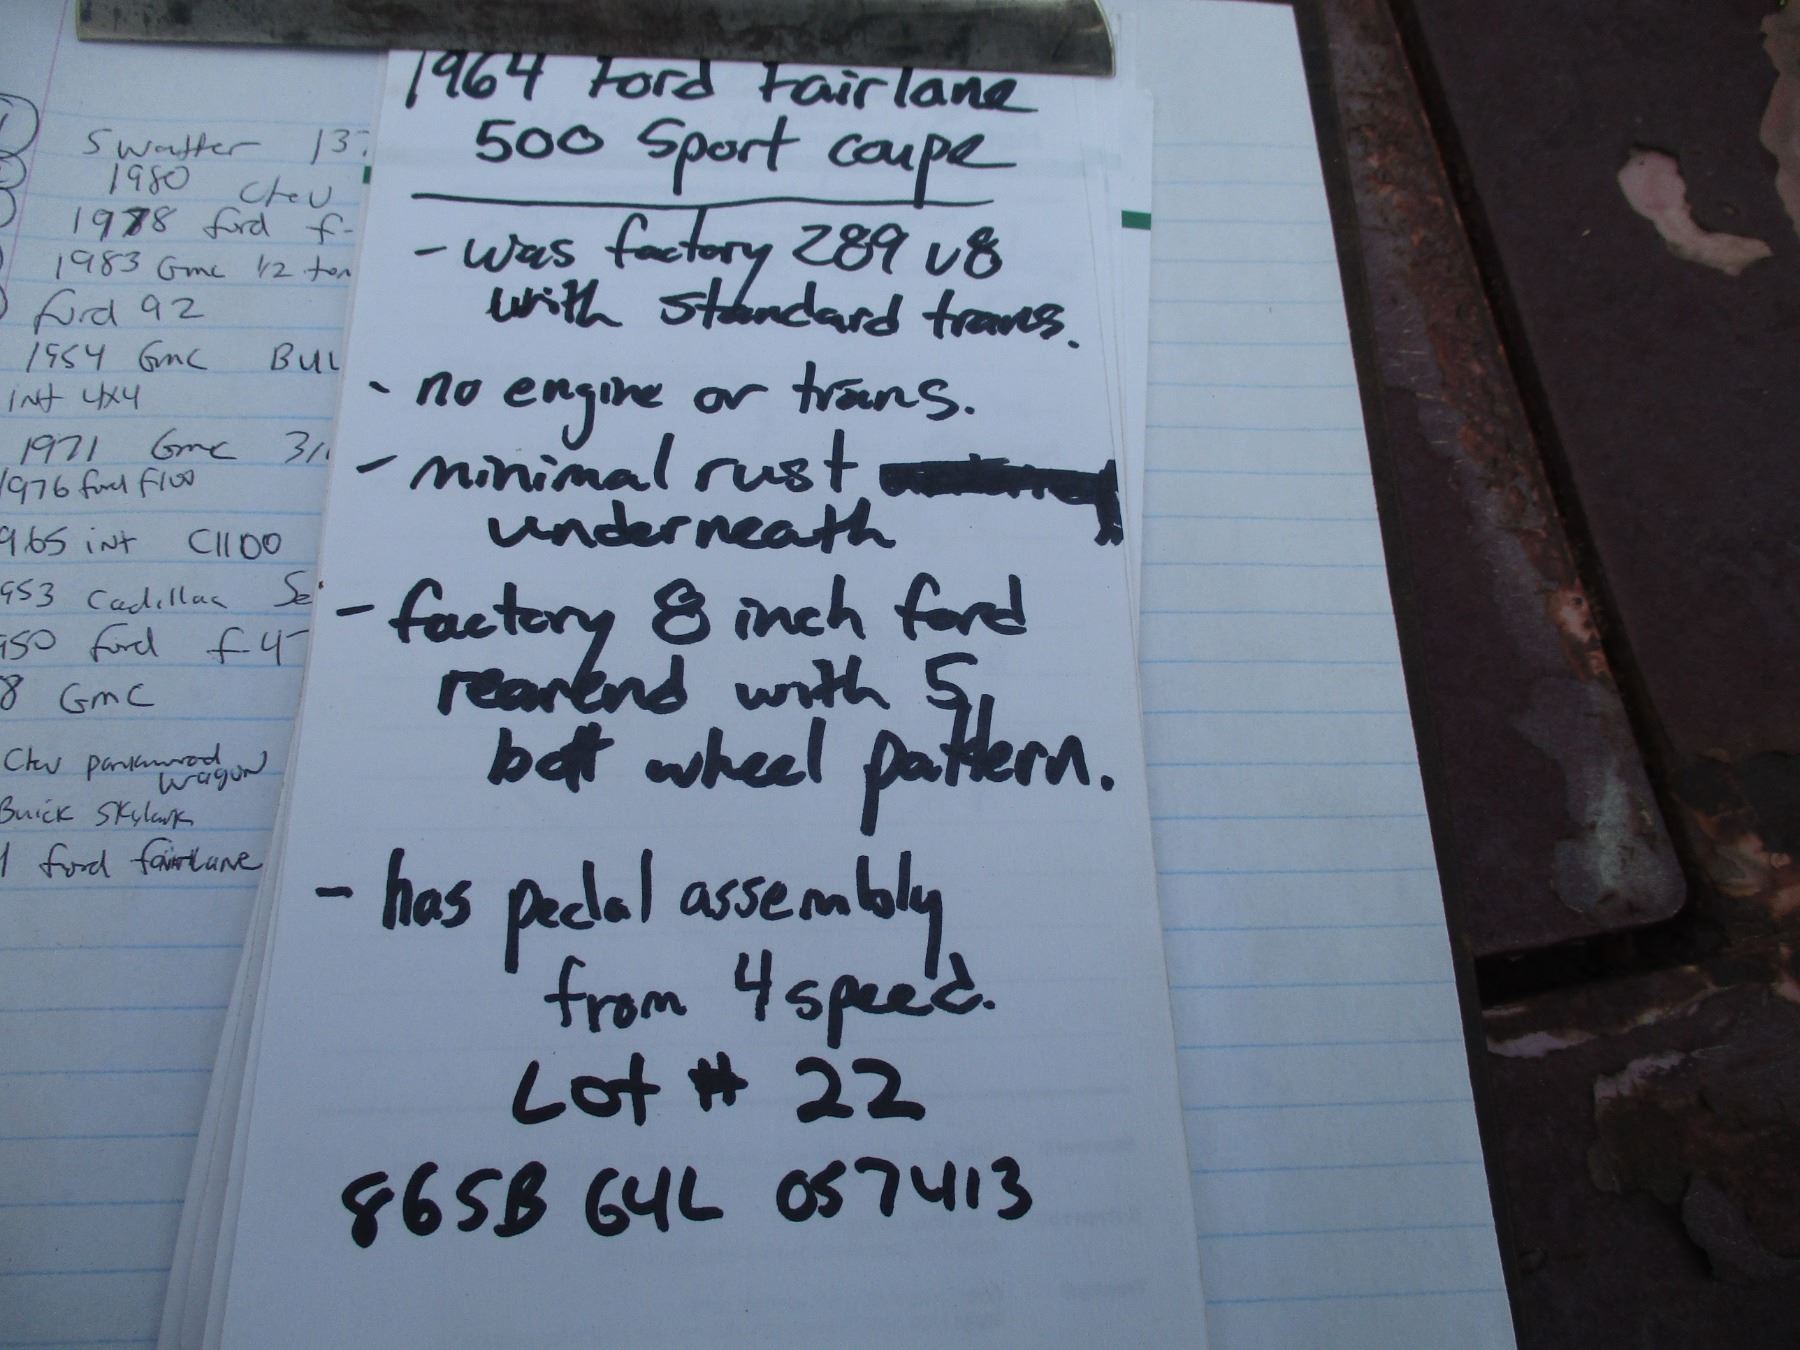 1964 Ford Fairlane
500 Sport coupe
- was factory 289 v8
with standard trans.
- no engine or trans.
- minimal rust
underneath
- factory 8 inch ford
rearend with 5
bolt wheel pattern.
- has pedal assembly
from 4 speed.
Lot # 22
865B G4L 057413
Swatter 137
1980 Chev
1978 ford f-
1983 Gmc 1/2 ton
ford 92
1954 Gmc BUL
int 4x4
1971 Gmc 3/
1976 ford f100
965 int C1100
953 Cadillac Se
950 ford f-4
8 GMC
Chev parkwood
wagon
Buick Skylark
ford fairlane